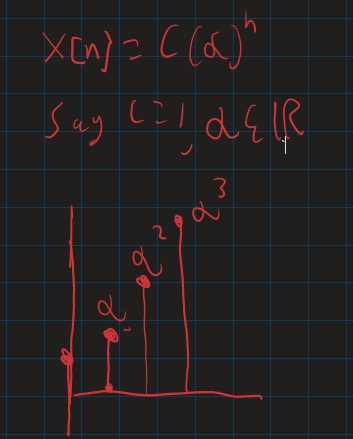 X[n] = C(α)^n
Say C=1, α ∈ ℝ
α^3
α^2
α